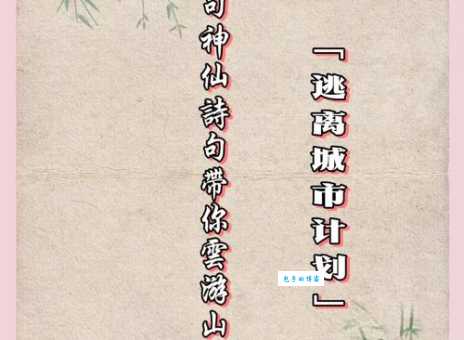 「逃离城市计划」
句神仙詩句帶你雲游山
包子的博客